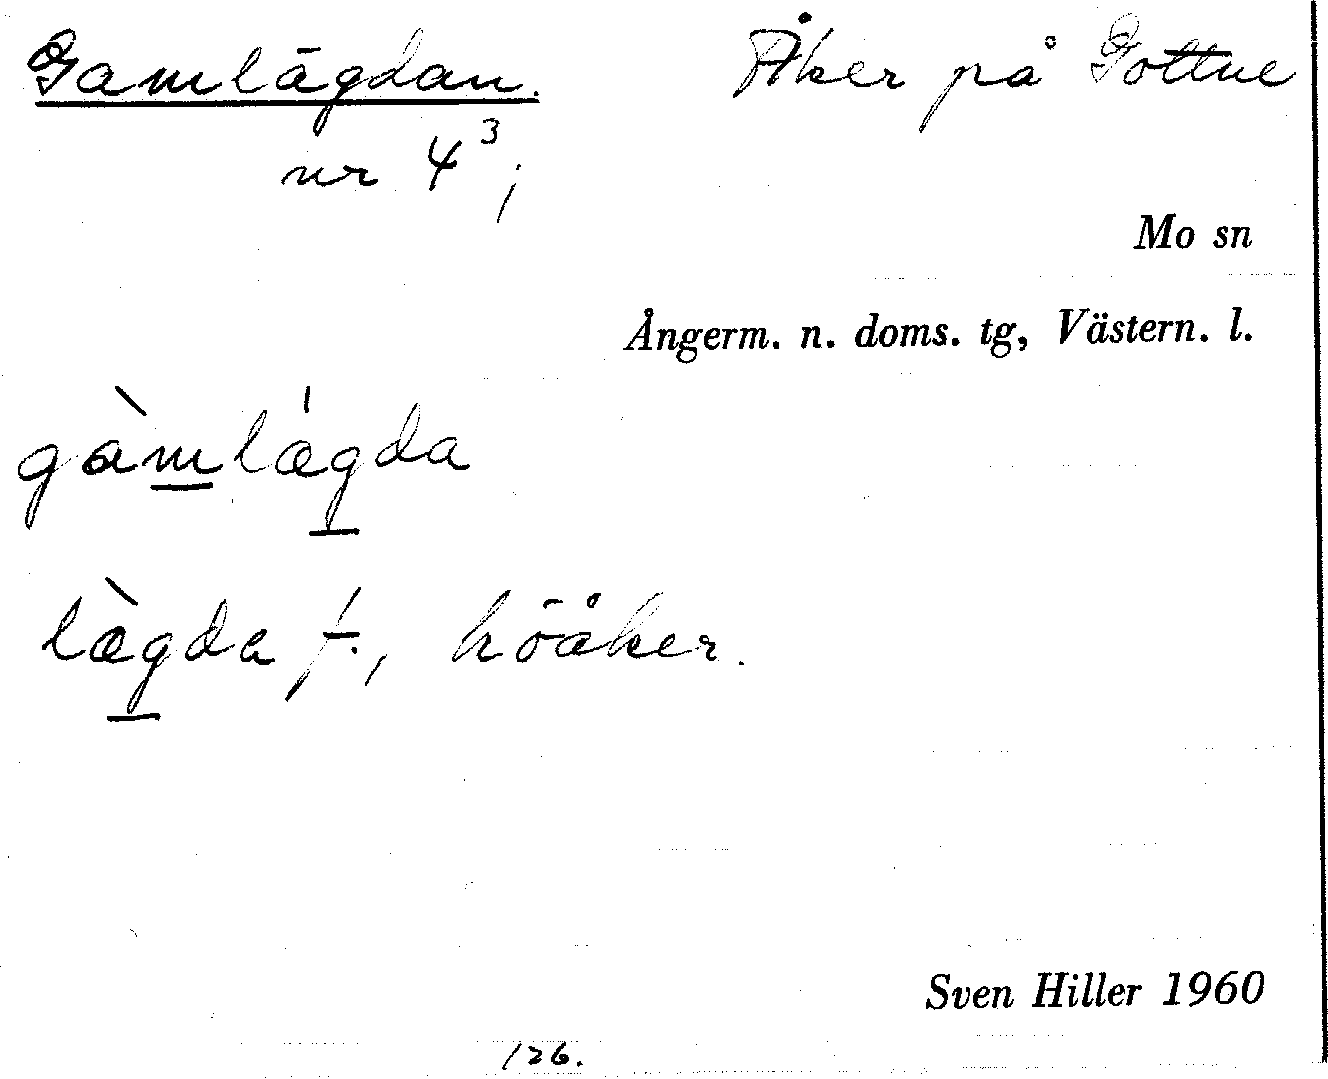 Gamlägdan. Åker på Gottne
nr 4³;
Mo sn
Ångerm. n. doms. tg, Västern. l.
gàmlǽgda
læ̀gda f., höåker.
Sven Hiller 1960
126.